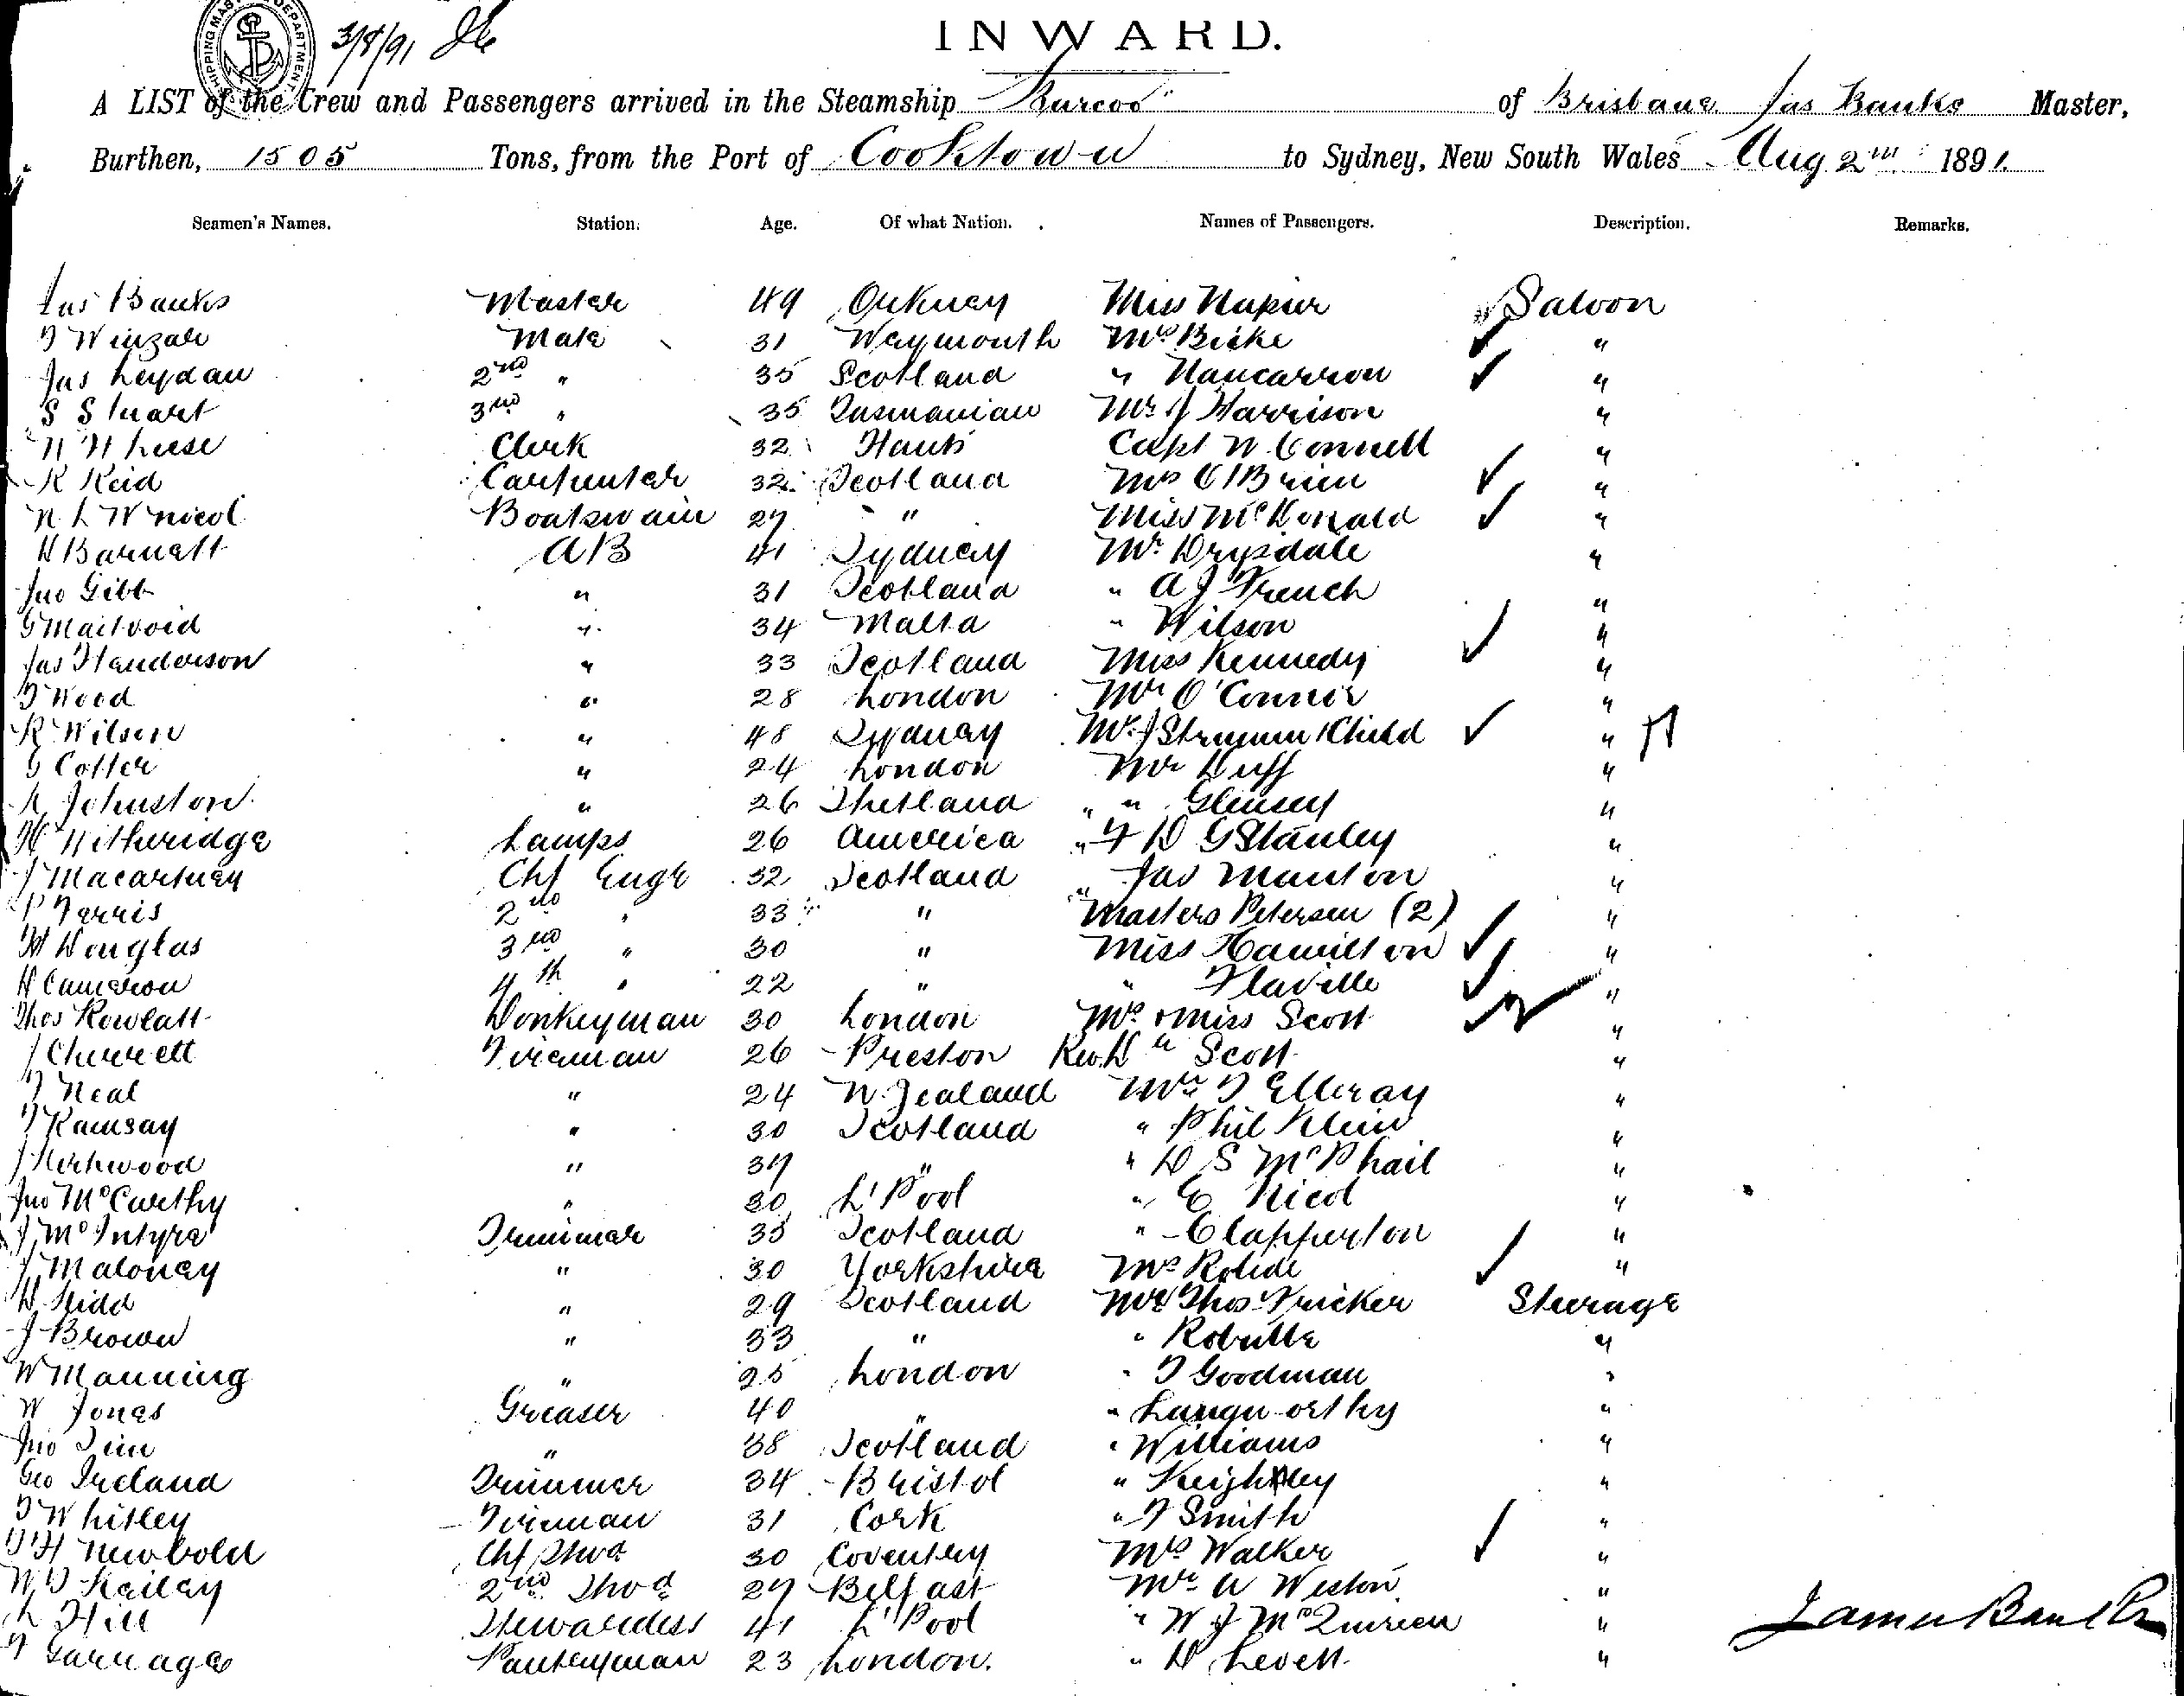 SHIPPING MASTER DEPARTMENT
3/8/91
INWARD.
A LIST of the Crew and Passengers arrived in the Steamship Barcoo of Brisbane Jas Banks Master,
Burthen, 1505 Tons, from the Port of Cooktown to Sydney, New South Wales Aug 2nd 1891.
Seamen's Names. Station. Age. Of what Nation. Names of Passengers. Description. Remarks.
Jas Banks Master 49 Orkney Miss Napier Saloon
Mate 31 Weymouth Mrs "
Jas Leydan 2nd " 35 Scotland " Nancarrow "
S Stuart 3rd " 35 Tasmanian Mr J Harrison "
Clerk 32 Hants Capt W Connell "
R Reid Carpenter 32 Scotland Mrs O'Brien "
Boatswain 27 " Miss McDonald "
D Barnett AB 41 Sydney Mr Drysdale "
Jno Gibb " 31 Scotland " A J French "
" 34 Malta " Wilson "
Jas Henderson " 33 Scotland Miss Kennedy "
T Wood " 28 London Mr O'Connor "
R Wilson " 48 Sydney Child "
G Cotter " 24 London Mr Duff "
Johnston " 26 Shetland " " "
H Witheridge Lamps 26 America " F D G Stanley "
J Macartney Chf Engr 32 Scotland " Jas Manton "
P Ferris 2nd " 33 " Masters Petersen (2) "
Douglas 3rd " 30 " Miss Hamilton "
D Cameron 4th " 22 " " Flaville "
Thos Rowlatt Donkeyman 30 London Mrs & Miss Scott "
J Fireman 26 Preston Rev Scott "
T Neal " 24 N. Zealand Mr T Elleray "
T Ramsay " 30 Scotland " Phil Klein "
J Kirkwood " 37 " " D S McPhail "
Jno McCarthy " 30 L'Pool " E Nicol "
J McIntyre Trimmer 35 Scotland " Clapperton "
J Maloney " 30 Yorkshire Mrs "
D Kidd " 29 Scotland Mr Thos Fricker Steerage
J Brown " 33 " " "
W Manning " 25 London " T Goodman "
W Jones Greaser 40 " " Langworthy "
Jno " 38 Scotland " Williams "
Geo Ireland Trimmer 34 Bristol " Keightley "
T Whitley Fireman 31 Cork " T Smith "
Newbold Chf Stwd 30 Coventry Mrs Walker "
2nd Stwd 27 Belfast Mr A Weston "
L Hill Stewardess 41 L'Pool " W J "
Pantryman 23 London. " D Levett "
James Banks